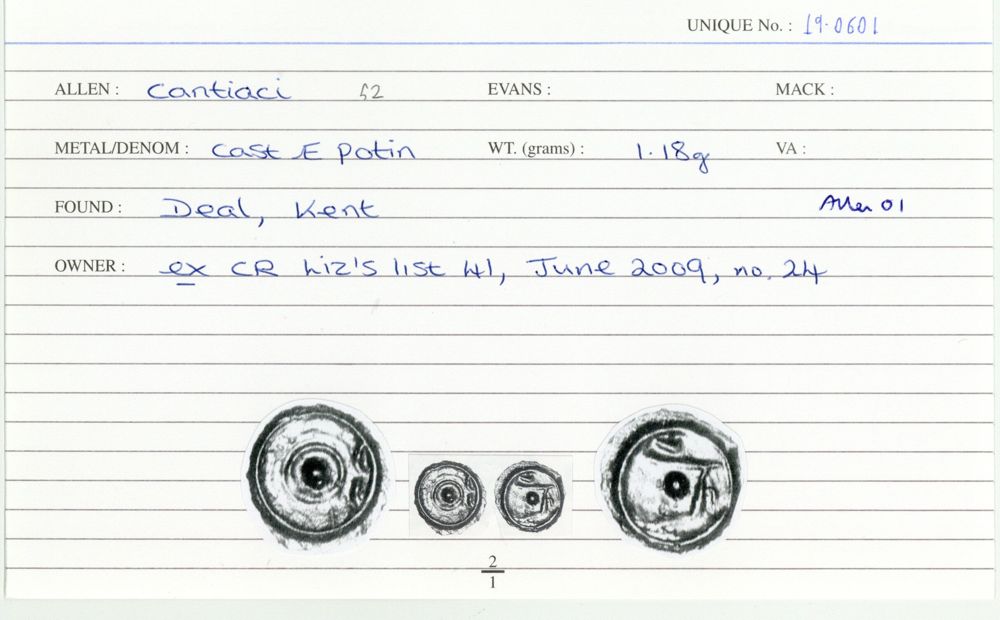 UNIQUE No. : 19.0601
ALLEN : Cantiaci 52 EVANS : MACK :
METAL/DENOM : Cast Æ potin WT. (grams) : 1.18g VA :
FOUND : Deal, Kent Allen 01
OWNER : ex CR Liz's list 41, June 2009, no. 24
2
1